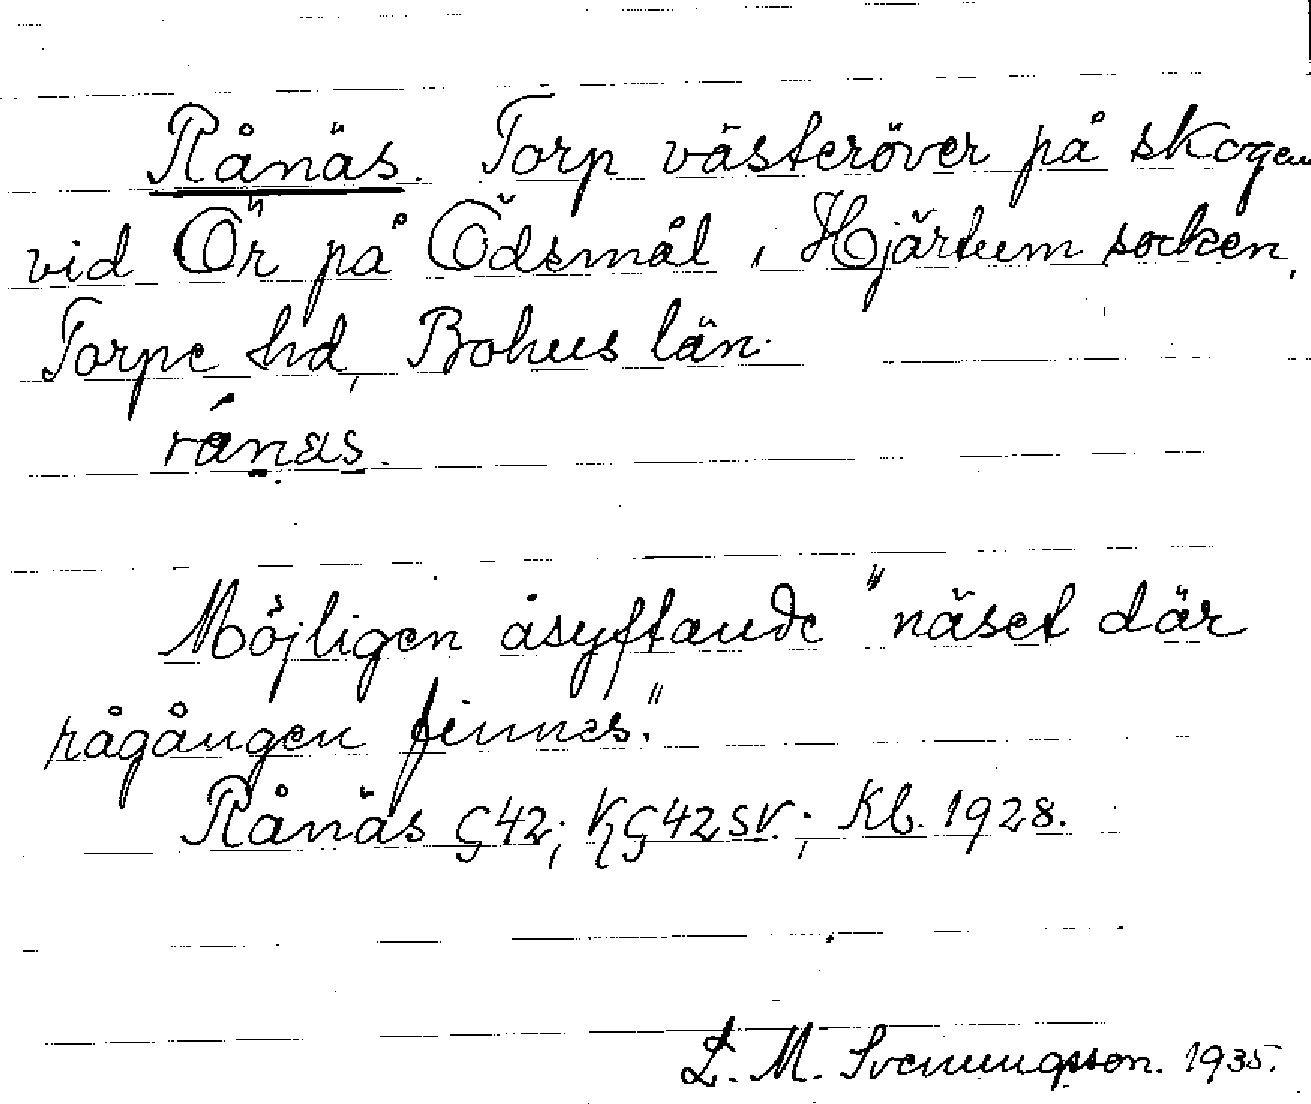 Rånäs. Torp västeröver på skogen
vid Ör på Ödsmål, Hjärtum socken,
Torpe hd, Bohus län.
rånäs.
Möjligen åsyftande "näset där
rågången finnes."
Rånäs G42; KG42SV.; Kb. 1928.
L. M. Svenungsson. 1935.